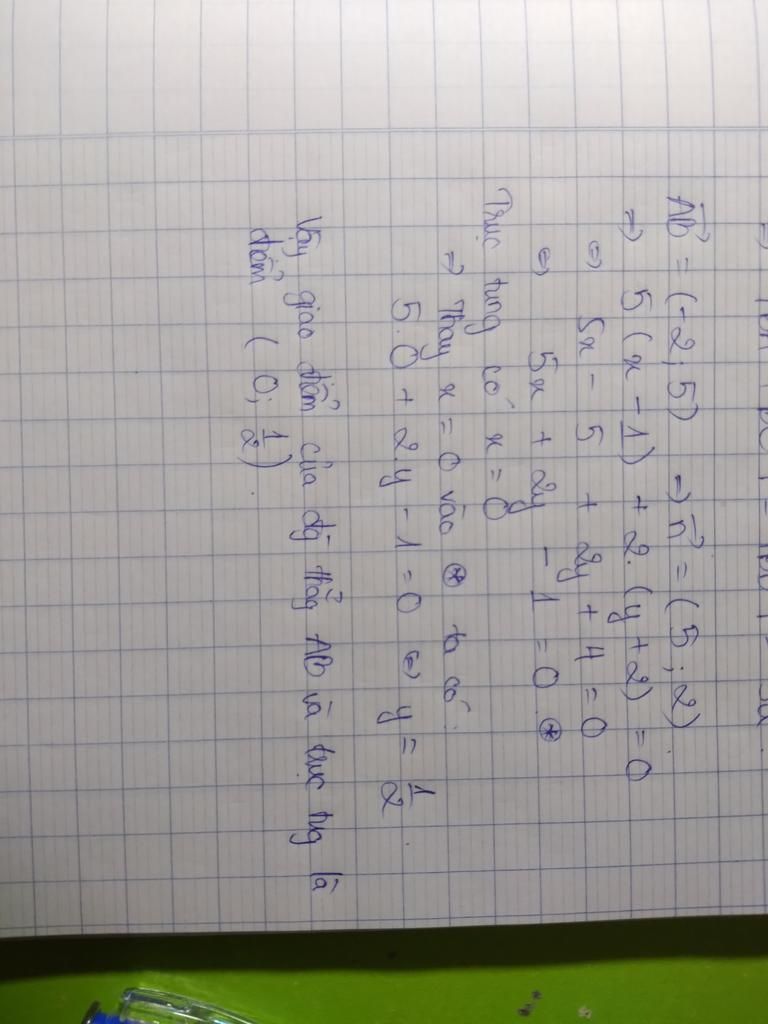 AB⃗ = (-2; 5) → n⃗ = (5; 2)
⇒ 5(x - 1) + 2.(y + 2) = 0
⇔ 5x - 5 + 2y + 4 = 0
⇔ 5x + 2y - 1 = 0 ⊛
Trục tung có x = 0
⇒ Thay x = 0 vào ⊛ ta có:
5.0 + 2.y - 1 = 0 ⇔ y = 1/2
Vậy giao điểm của đg thẳg AB và trục tug là
điểm (0; 1/2).